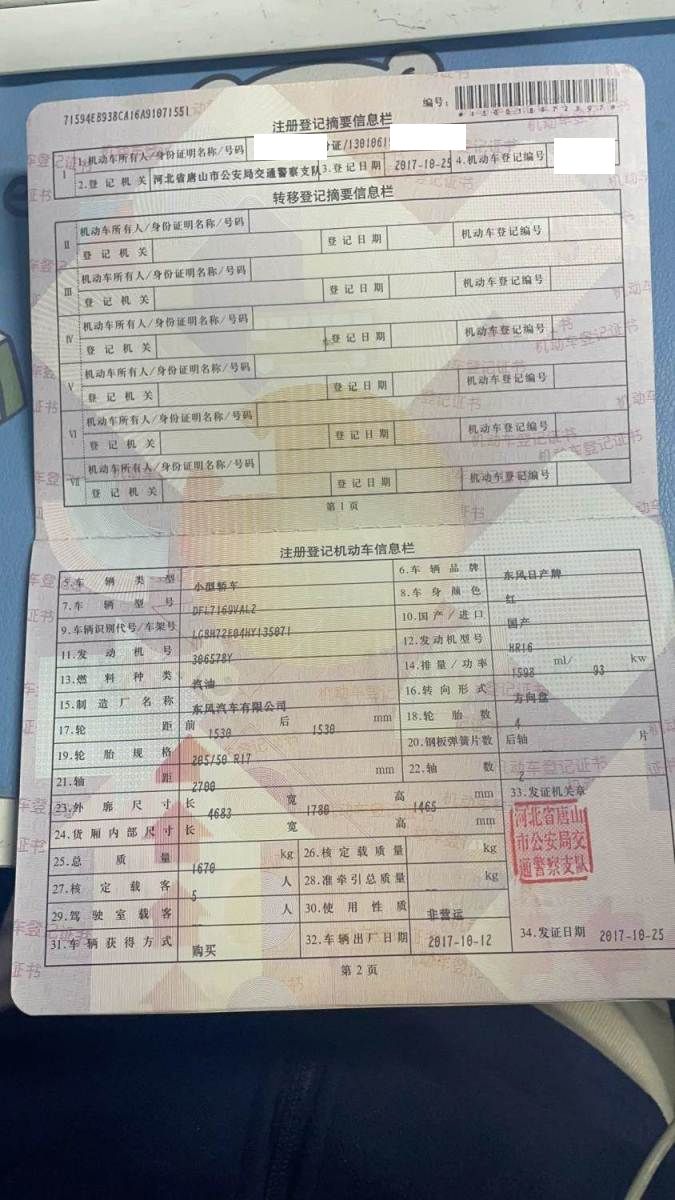 71594EB938CA16A91071551
编号:
注册登记摘要信息栏
I 1.机动车所有人/身份证明名称/号码 份证/1301061
2.登记机关 河北省唐山市公安局交通警察支队 3.登记日期 2017-10-25 4.机动车登记编号
转移登记摘要信息栏
II 机动车所有人/身份证明名称/号码
登记机关 登记日期 机动车登记编号
III 机动车所有人/身份证明名称/号码
登记机关 登记日期 机动车登记编号
IV 机动车所有人/身份证明名称/号码
登记机关 登记日期 机动车登记编号
V 机动车所有人/身份证明名称/号码
登记机关 登记日期 机动车登记编号
VI 机动车所有人/身份证明名称/号码
登记机关 登记日期 机动车登记编号
VII 机动车所有人/身份证明名称/号码
登记机关 登记日期 机动车登记编号
第1页
注册登记机动车信息栏
5.车辆类型 小型轿车 6.车辆品牌 东风日产牌
7.车辆型号 DFL7169VAL2 8.车身颜色 红
9.车辆识别代号/车架号 LGBH72E04HY135071 10.国产/进口 国产
11.发动机号 306578Y 12.发动机型号 HR16
13.燃料种类 汽油 14.排量/功率 1598 ml/ 93 kw
15.制造厂名称 东风汽车有限公司 16.转向形式 方向盘
17.轮距 前 1530 后 1530 mm 18.轮胎数 4
19.轮胎规格 205/50 R17 20.钢板弹簧片数 后轴 片
21.轴距 2700 mm 22.轴数 2
23.外廓尺寸 长 4683 宽 1780 高 1465 mm 33.发证机关章
24.货厢内部尺寸 长 宽 高 mm
河北省唐山
市公安局交
通警察支队
25.总质量 1670 kg 26.核定载质量 kg
27.核定载客 5 人 28.准牵引总质量 -- kg
29.驾驶室载客 -- 人 30.使用性质 非营运
31.车辆获得方式 购买 32.车辆出厂日期 2017-10-12 34.发证日期 2017-10-25
第2页